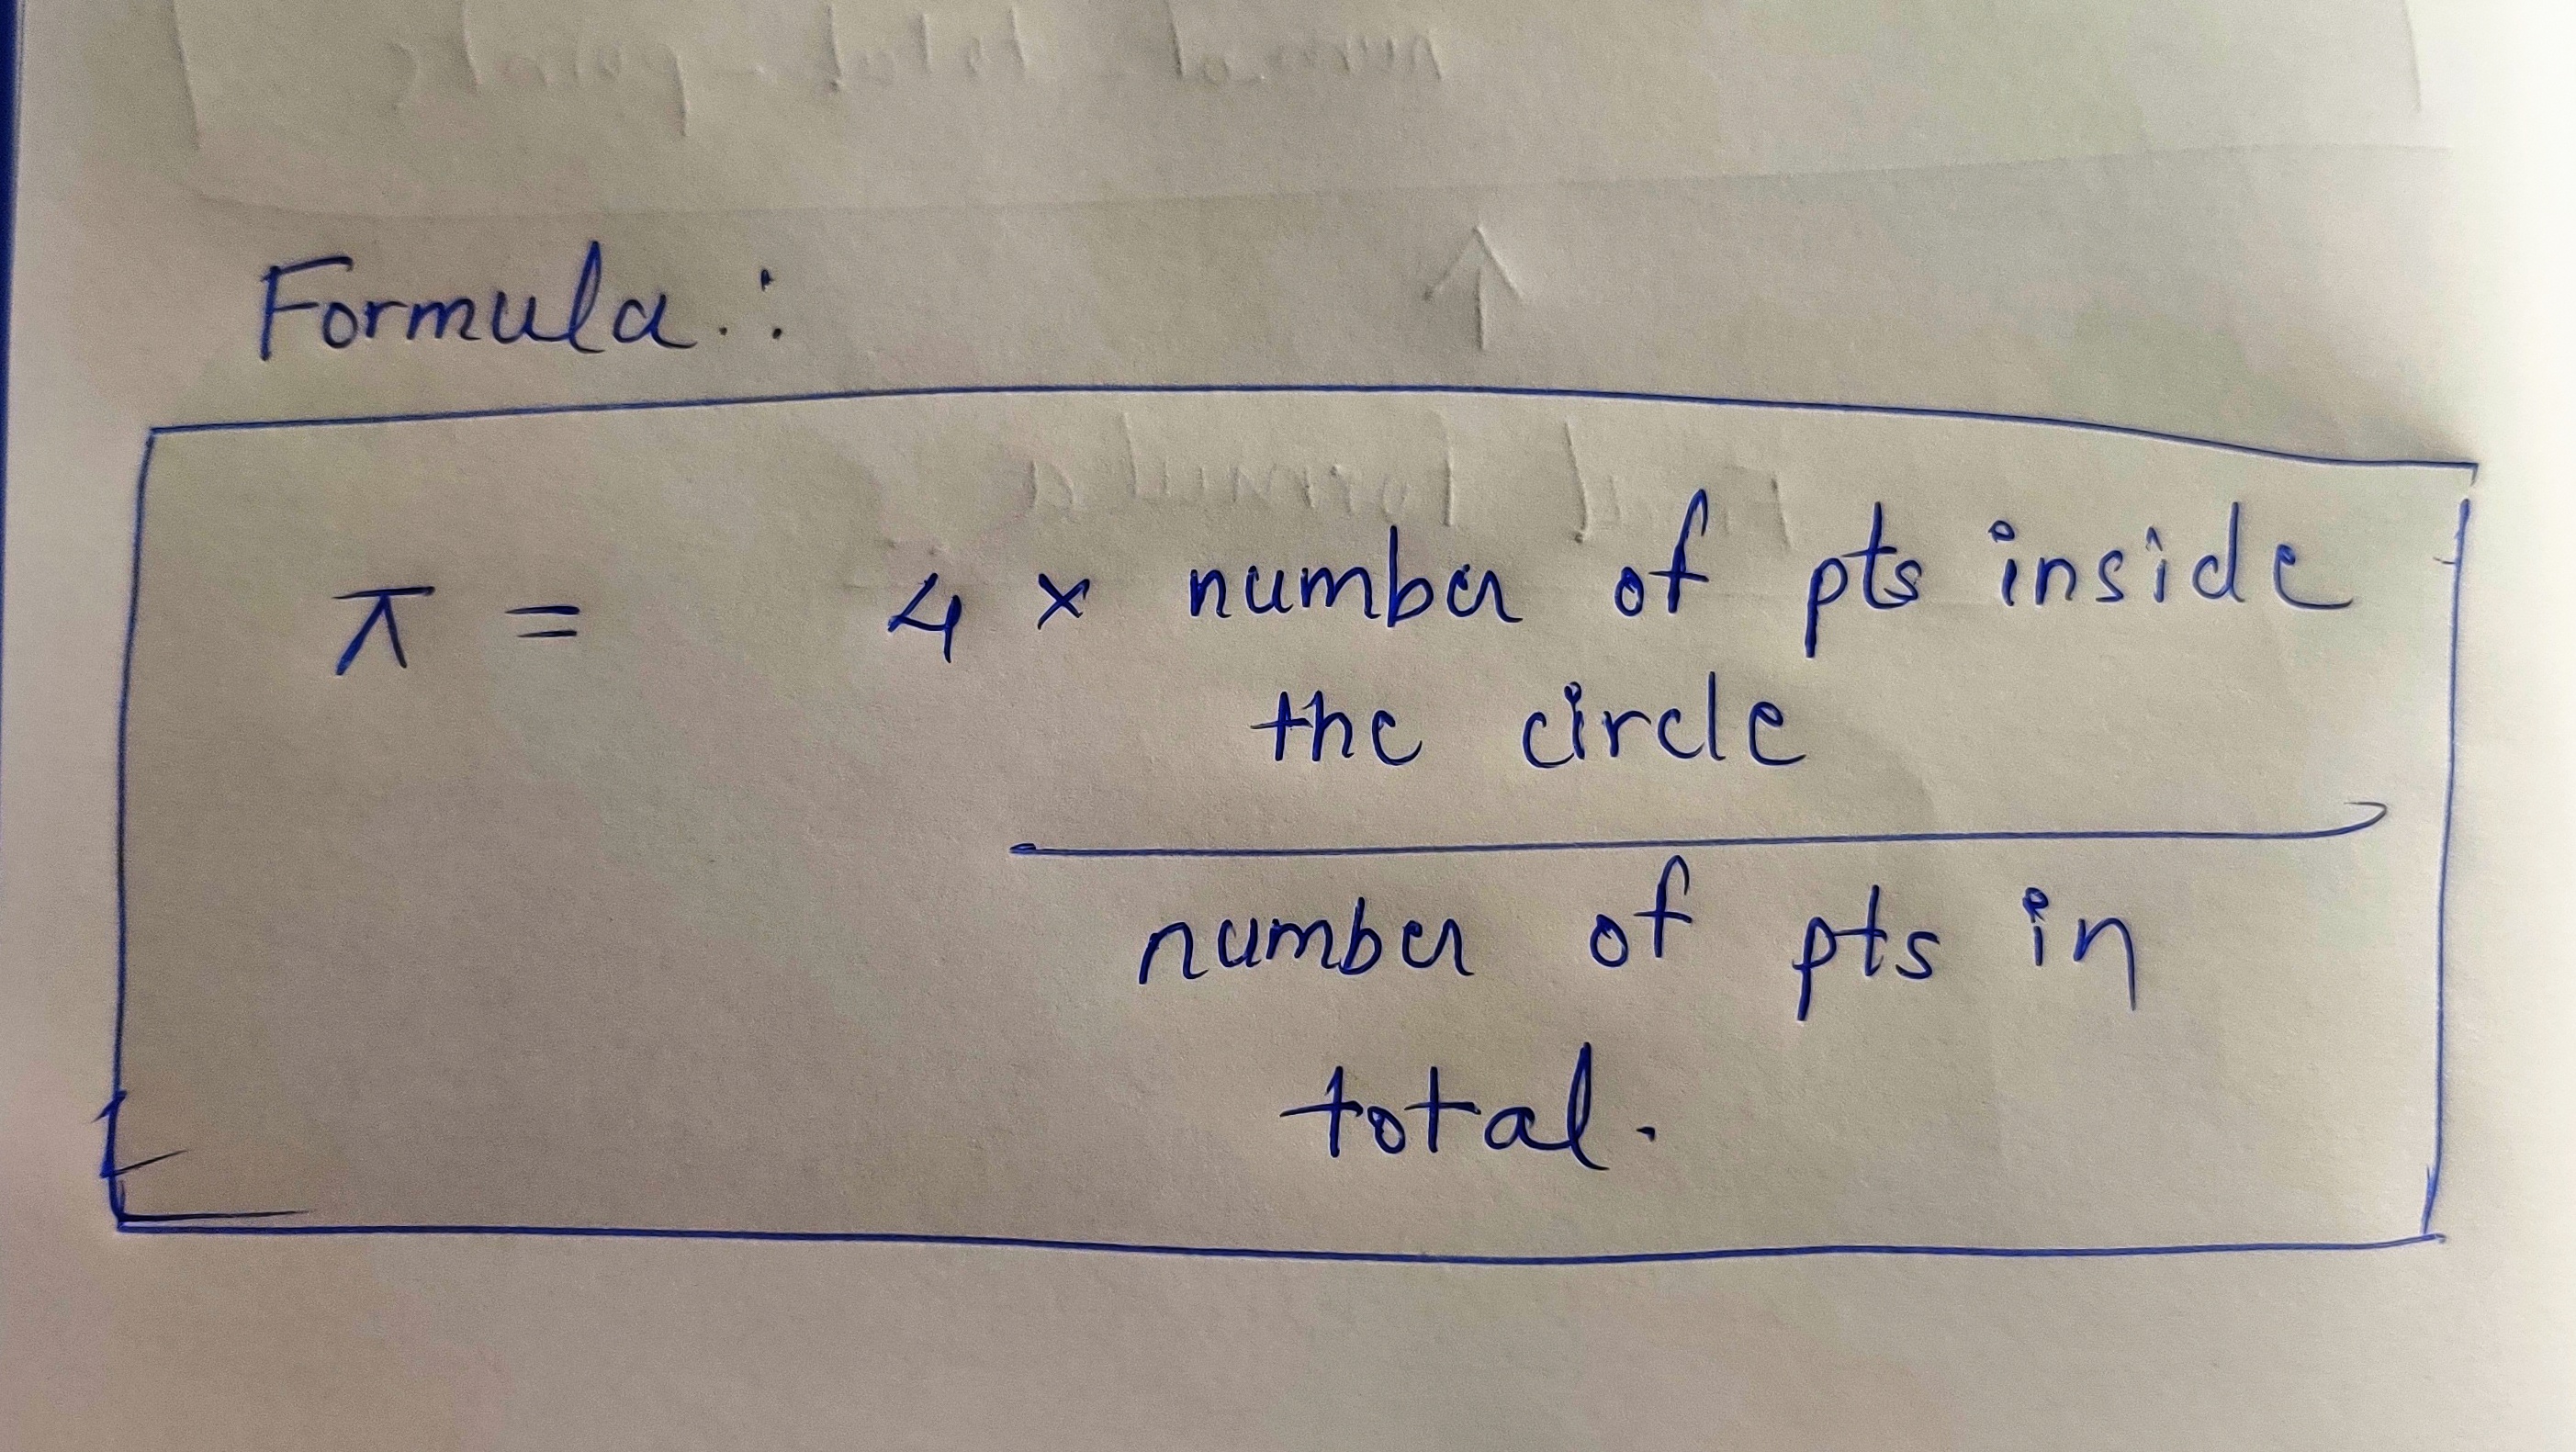 Formula :
π = 4 × number of pts inside
the circle
number of pts in
total.